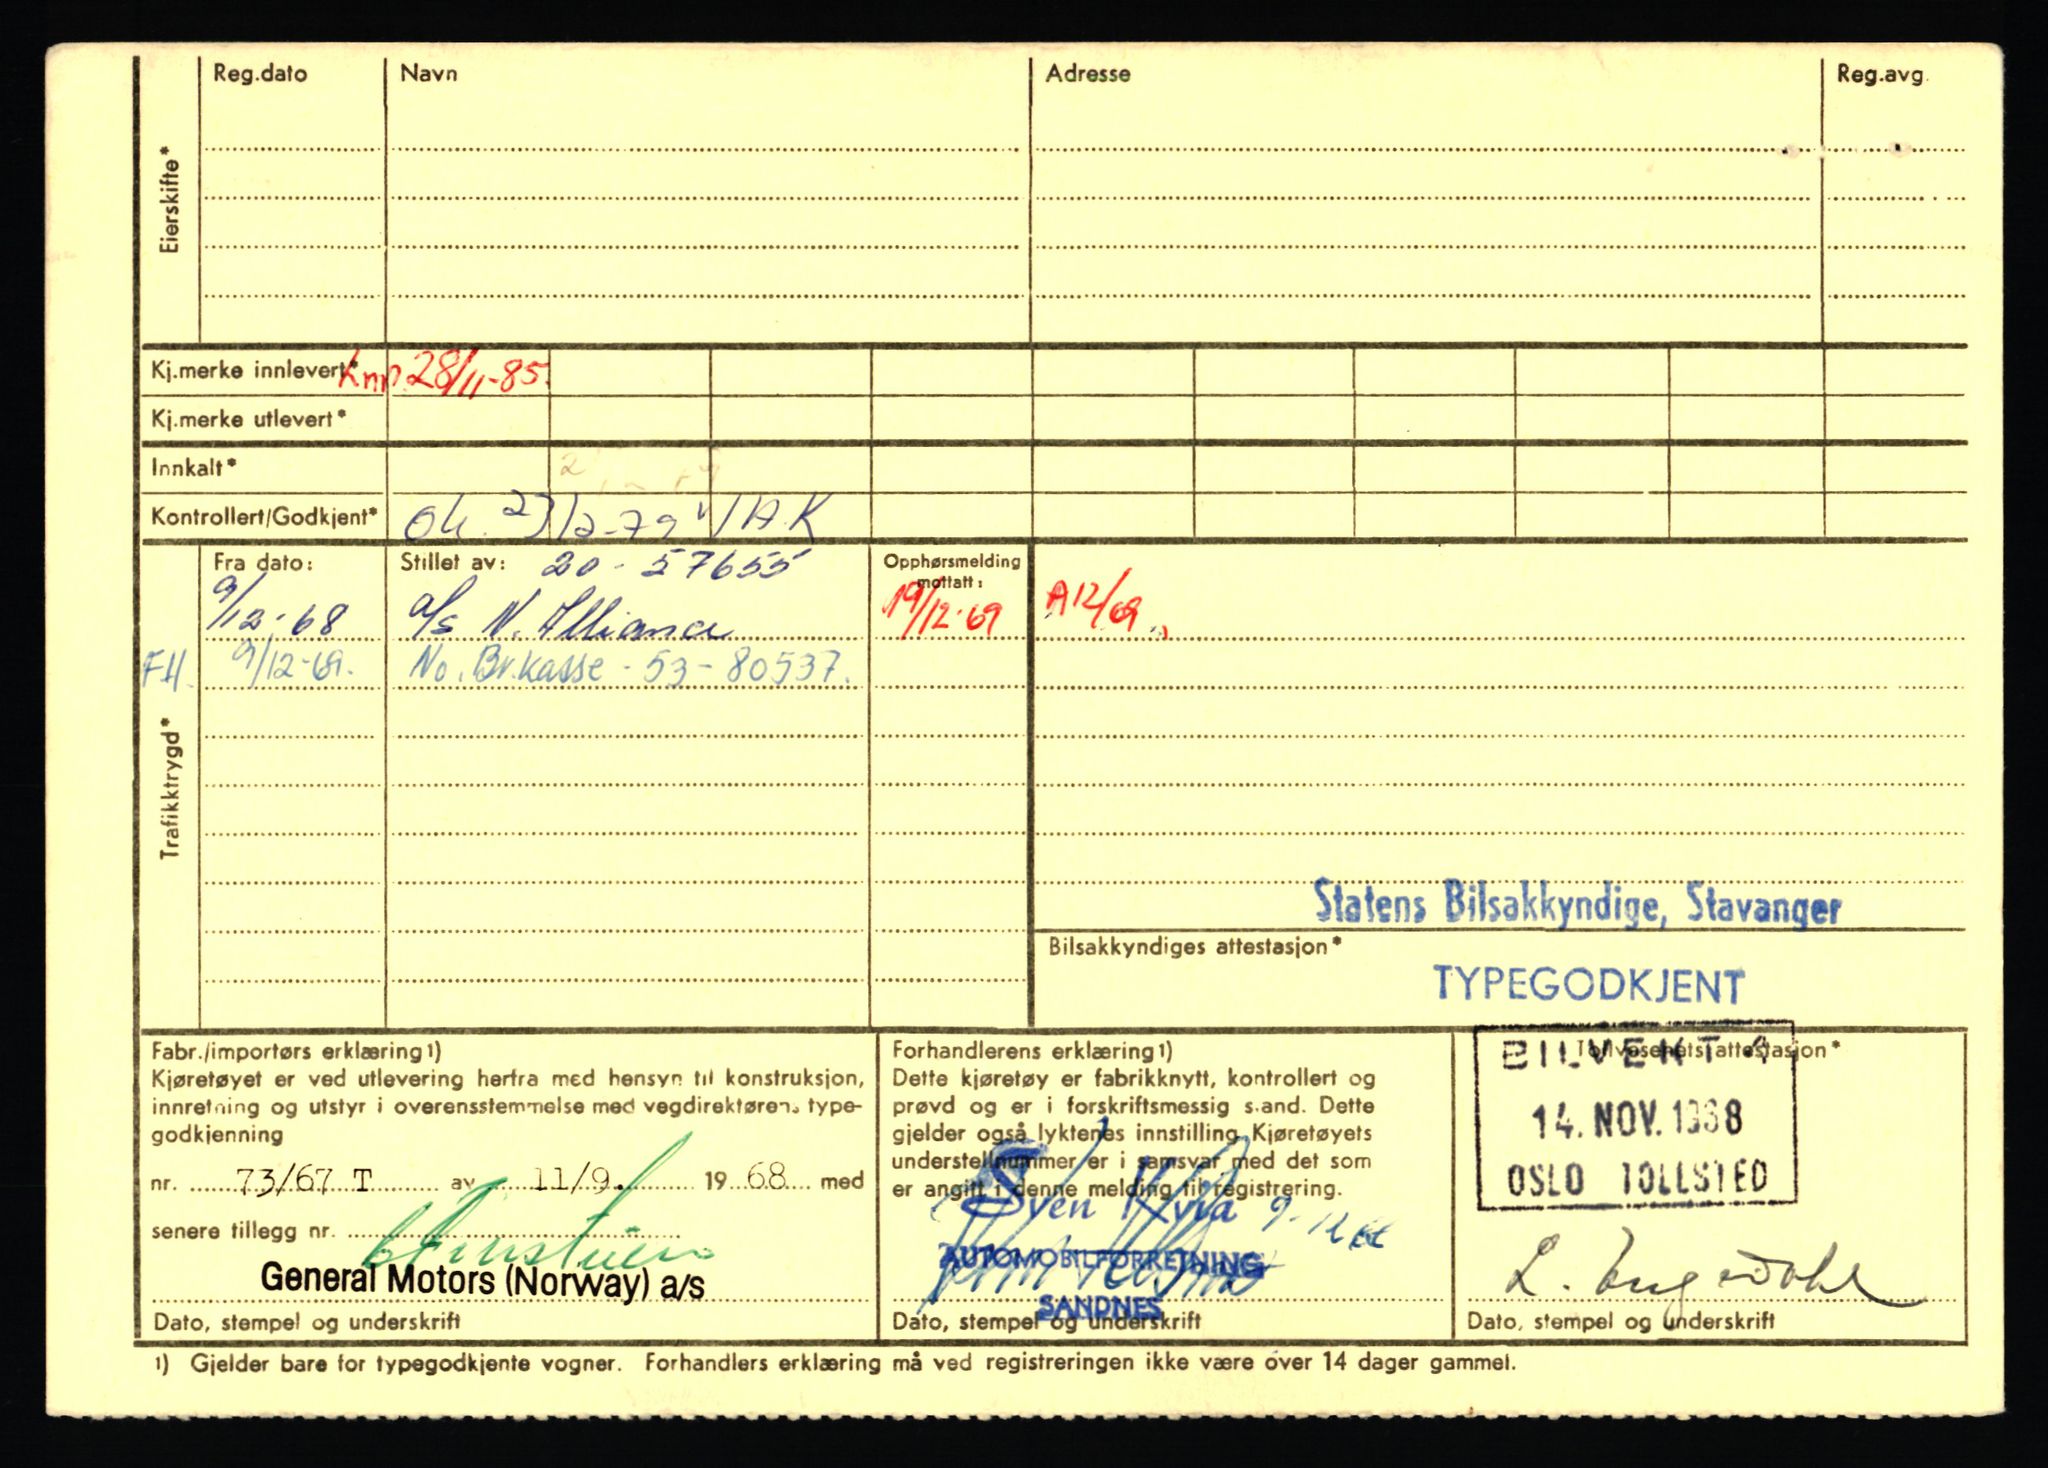 Reg.dato Navn Adresse Reg.avg.
Eierskifte*
Kj.merke innlevert* 28/11-85.
Kj.merke utlevert*
Innkalt*
Kontrollert/Godkjent* Ok. 27/12-79 A.K
Fra dato: Stillet av: 20-57655 Opphørsmelding mottatt:
9/12-68 a/s N. Alliance 19/12-69 A12/69
FH. 9/12-69. No. Br.kasse - 53-80537.
Trafikktrygd*
Statens Bilsakkyndige, Stavanger
Bilsakkyndiges attestasjon*
TYPEGODKJENT
Fabr./importørs erklæring 1)
Kjøretøyet er ved utlevering herfra med hensyn til konstruksjon,
innretning og utstyr i overensstemmelse med vegdirektørens type-
godkjenning
nr. 73/67 T av 11/9. 1968 med
senere tillegg nr.
General Motors (Norway) a/s
Dato, stempel og underskrift
Forhandlerens erklæring 1)
Dette kjøretøy er fabrikknytt, kontrollert og
prøvd og er i forskriftsmessig stand. Dette
gjelder også lyktenes innstilling. Kjøretøyets
understellnummer er i samsvar med det som
er angitt i denne melding til registrering.
Sven Kvia 9-12-68
AUTOMOBILFORRETNING
SANDNES
Dato, stempel og underskrift
Tollvesenets attestasjon*
BILVEKTA
14. NOV. 1968
OSLO TOLLSTED
L. Engedahl
Dato, stempel og underskrift
1) Gjelder bare for typegodkjente vogner. Forhandlers erklæring må ved registreringen ikke være over 14 dager gammel.